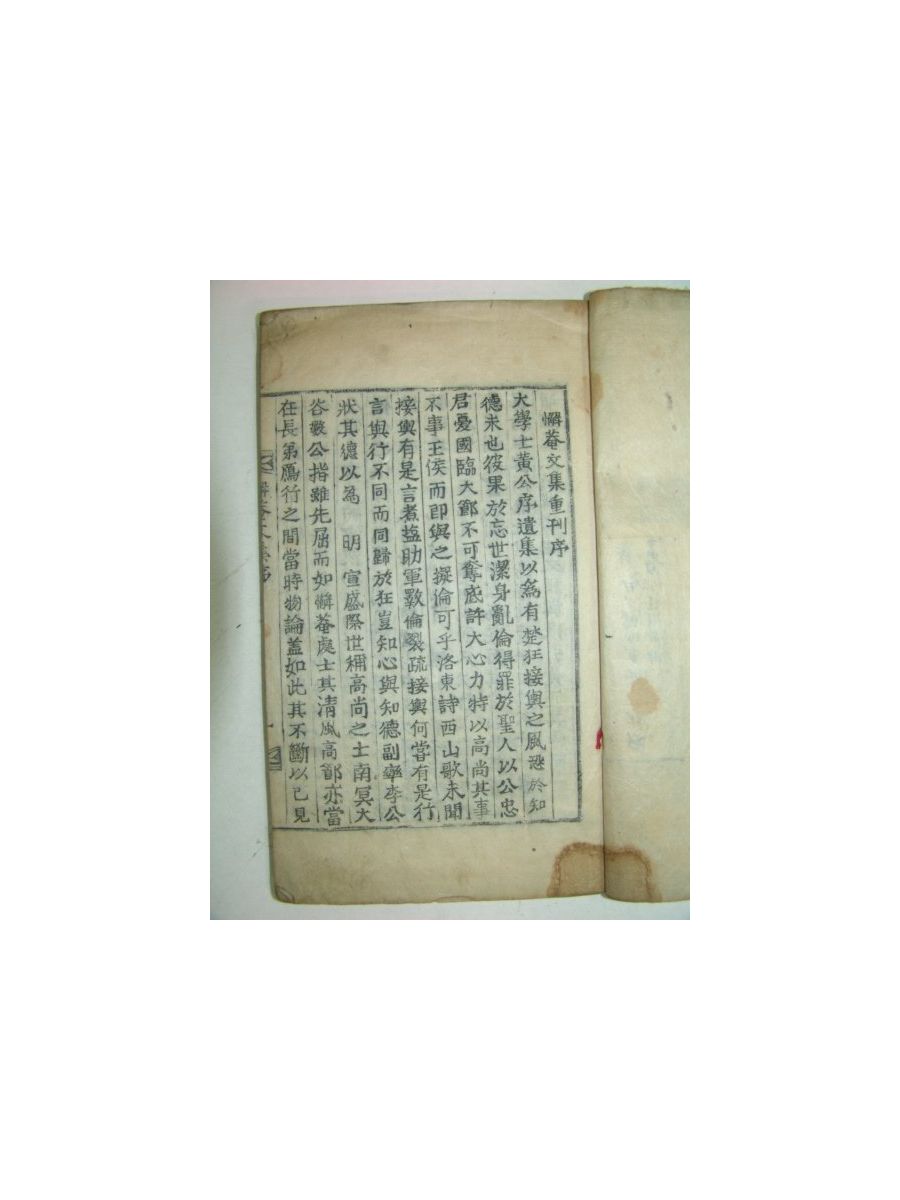 懈菴文集重刊序
大學士黃公序遺集以爲有楚狂接輿之風恐於知
德未也彼果於忘世潔身亂倫得罪於聖人以公忠
君憂國臨大節不可奪底許大心力特以高尚其事
不事王侯而即與之擬倫可乎洛東詩西山歌未聞
接輿有是言煮盐助軍斁倫裂疏接輿何嘗有是行
言與行不同而同歸於狂豈知心與知德副率李公
狀其德以爲 明 宣盛際世稱高尚之士南冥大
谷數公指雖先屈而如懈菴處士其清風高節亦當
在長第鴈行之間當時物論盖如此其不斷以已見